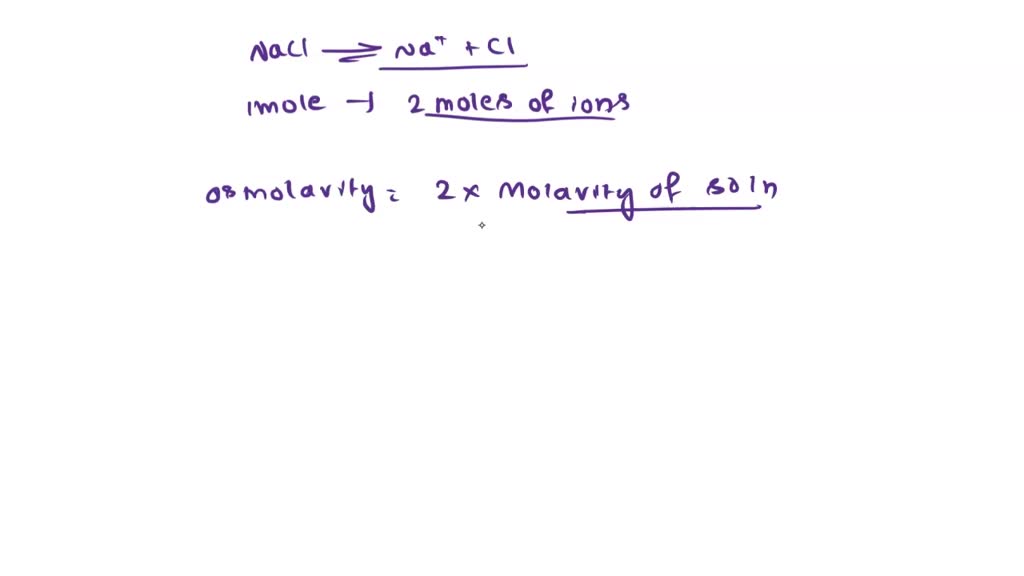 NaCl ⇌ Na⁺ + Cl
1mole → 2 moles of ions
osmolarity = 2 × Molarity of soln